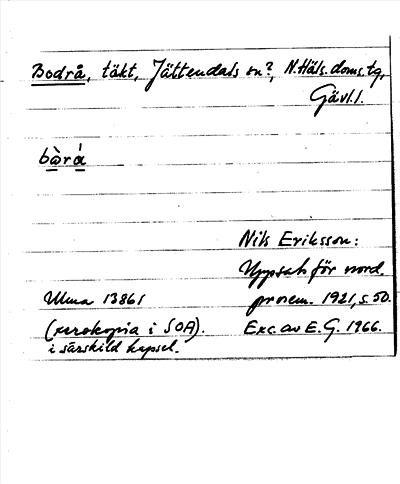 Bodrå, täkt, Jättendals sn?, N.Häls. doms.tg,
Gävl.l.
bɷ̀rá
Nils Eriksson:
Uppsats för nord.
Ulma 13861
prosem. 1921, s. 50.
(xerokopia i SOA).
Exc. av E. G. 1966.
i särskild kapsel.